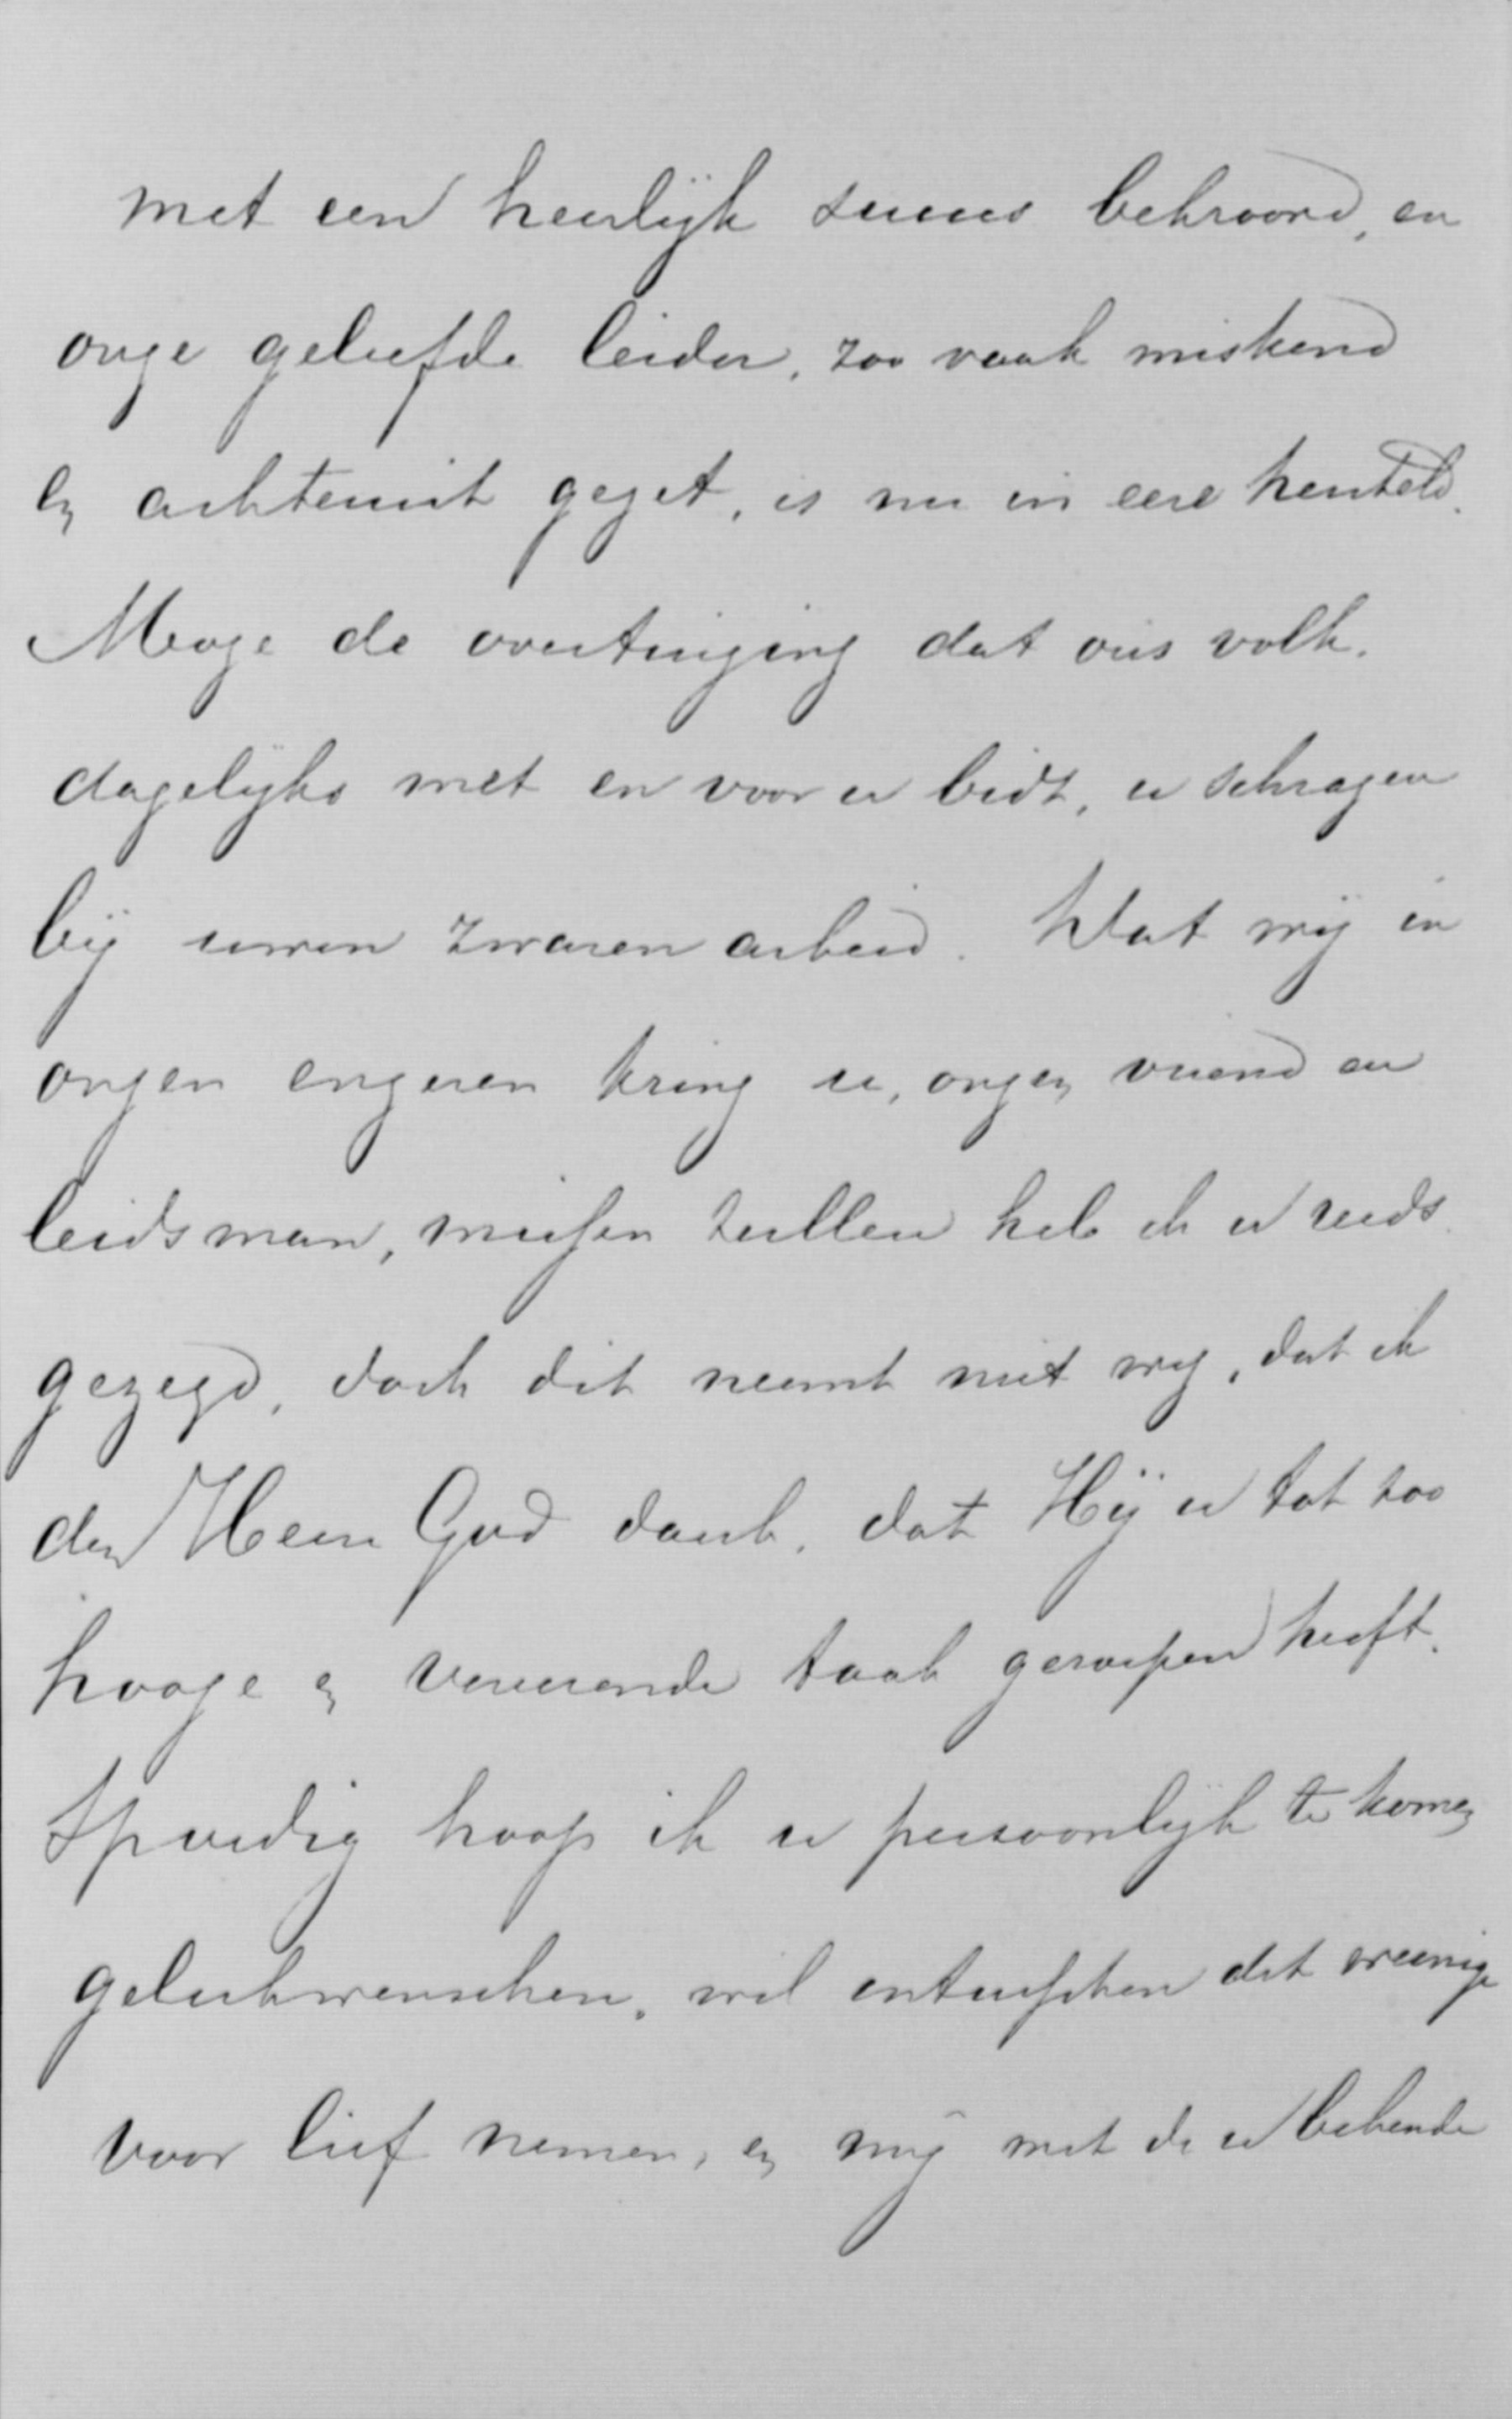 met een heerlijk succes bekroond, en
onze geliefde leider, zoo vaak miskend
en achteruit gezet, is nu in eere hersteld.
Moge de overtuiging dat ons volk.
dagelijks met en voor u bidt, u schragen
bij uwen zwaren arbeid. Wat wij in
onzen engeren kring u, onzen vriend en
leidsman, missen zullen heb ik u reeds
gezegd, doch dit neemt niet weg, dat ik
den Heere God dank, dat Hij u tot zoo
hooge en vereerende taak geroepen heeft.
Spoedig hoop ik u persoonlijk te komen
gelukwenschen, wil intusschen dit weinige
voor lief nemen, en mij met de u bekende